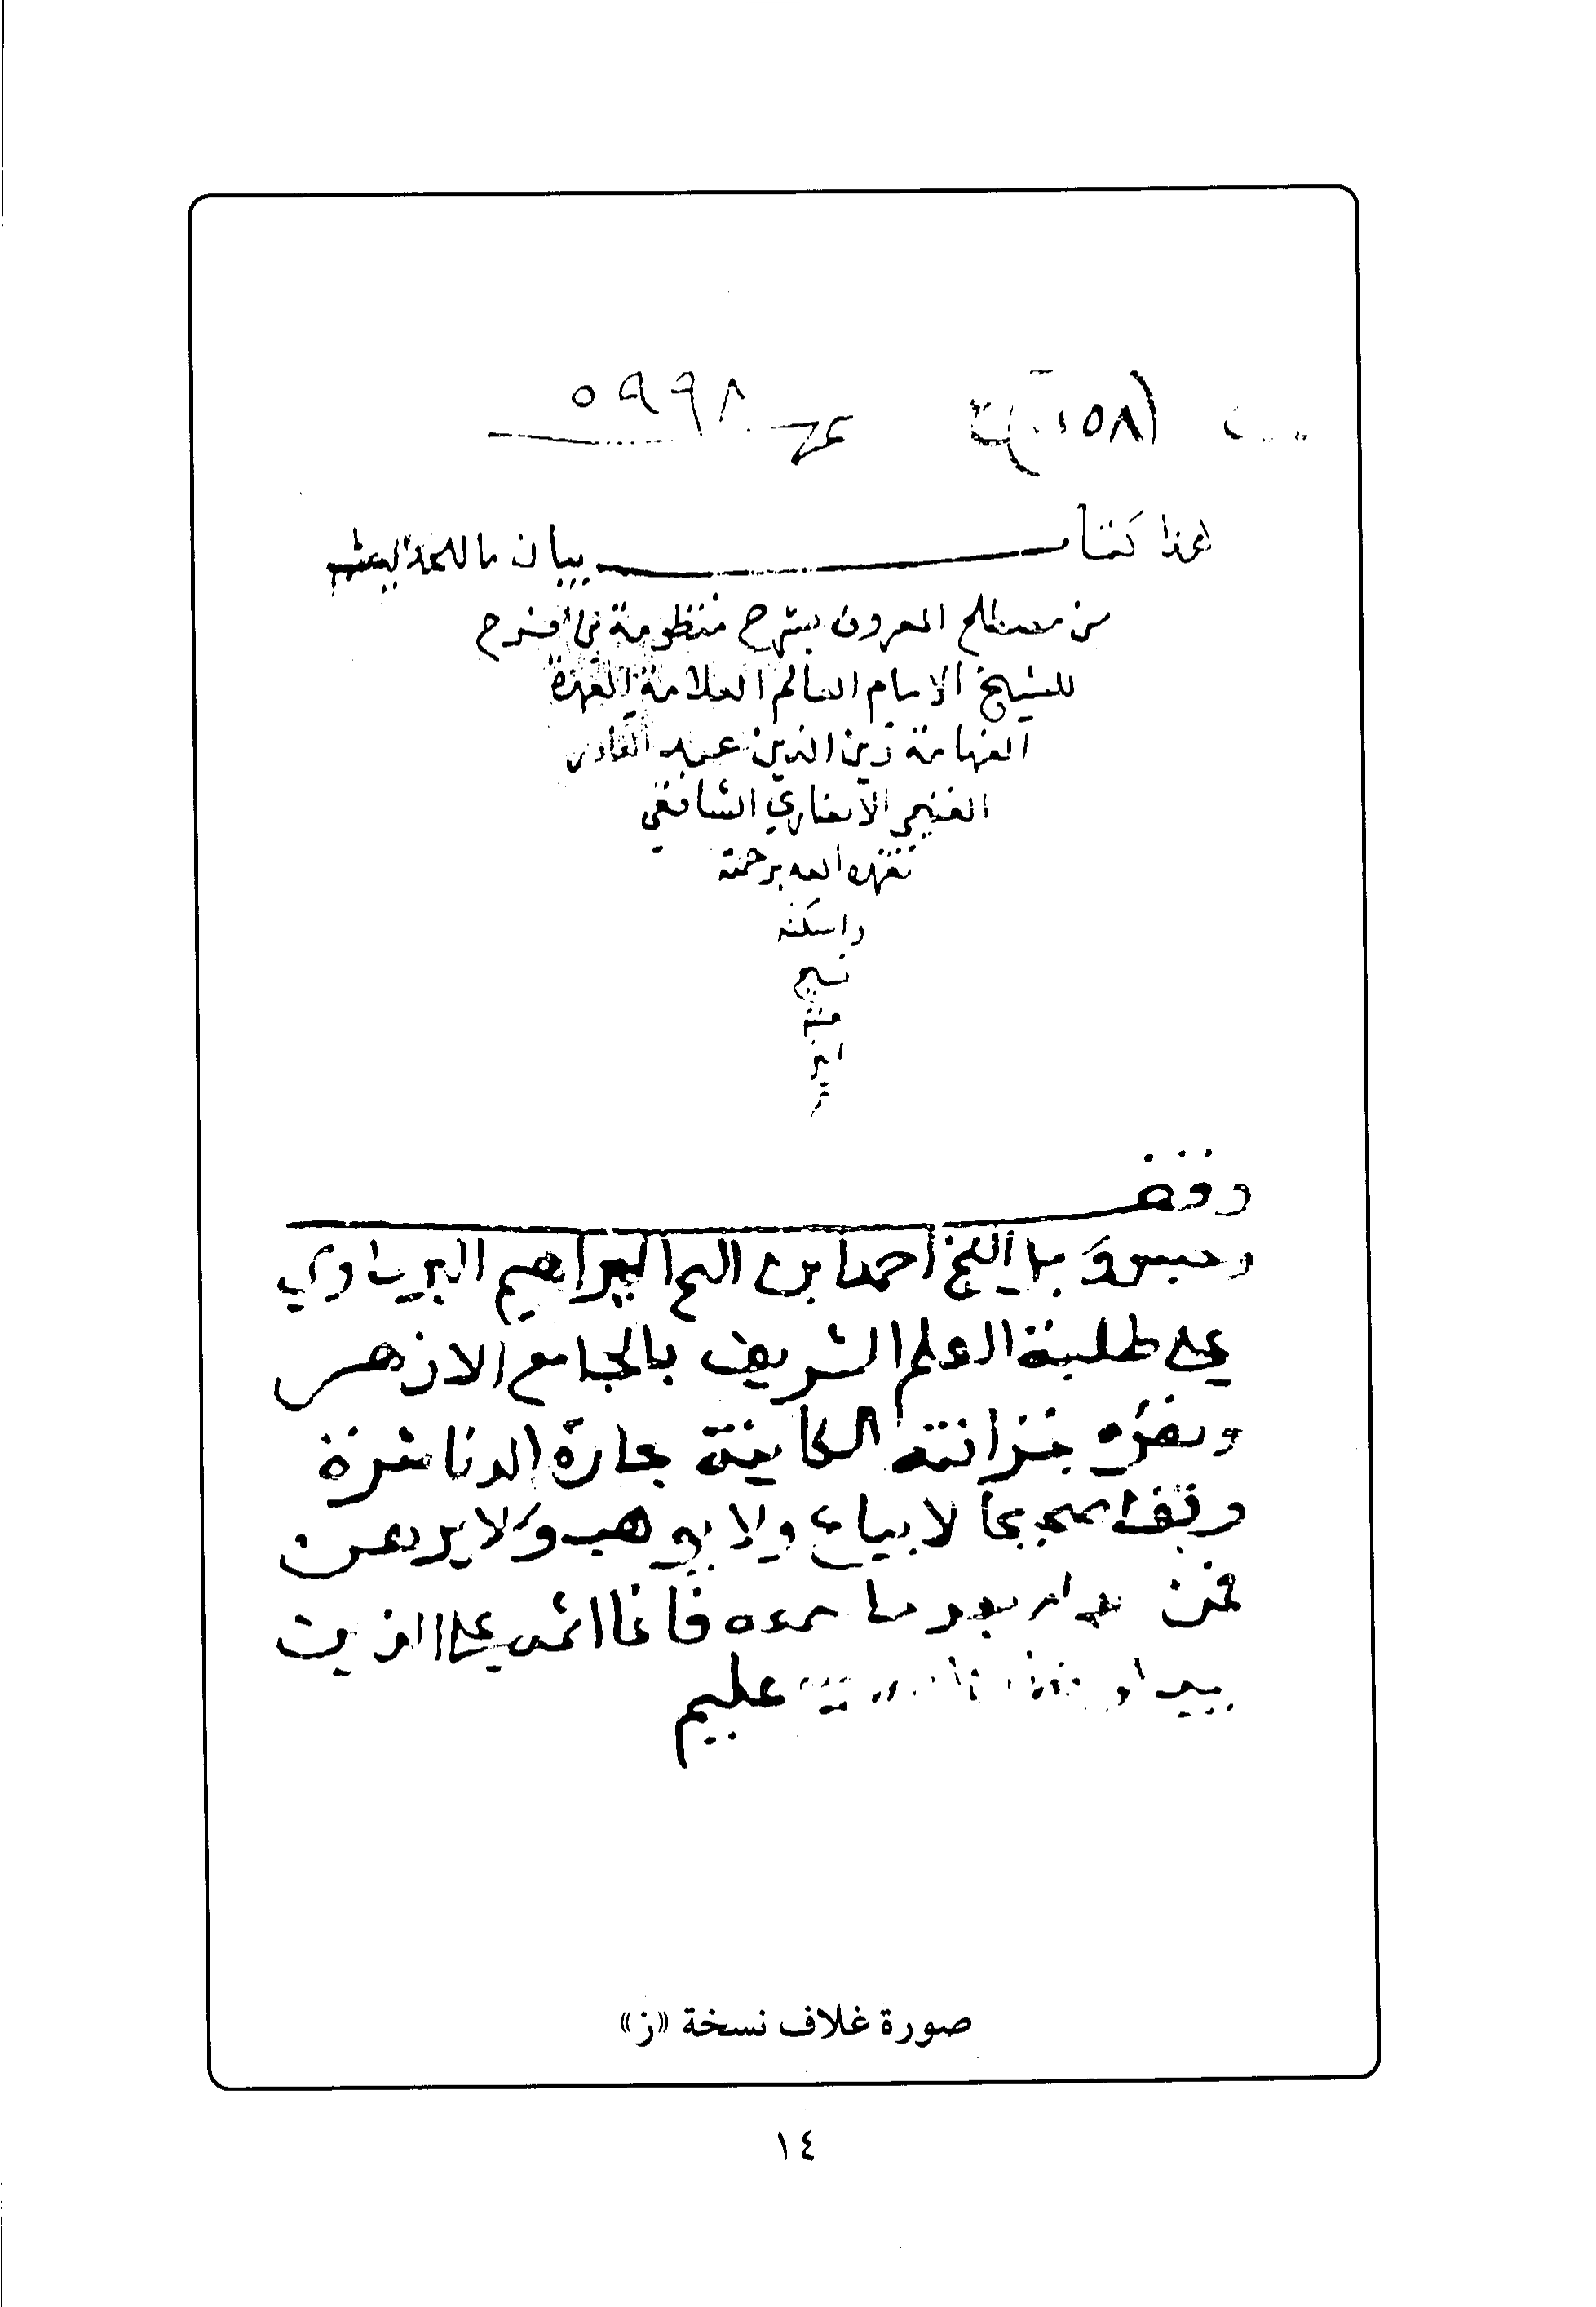 (١٥٨) ٥٩٩٨
هذا كتاب بيان ما
من مصطلح بشرح منظومة ابن فرح
للشيخ الامام العالم العلامة العمدة
الفهامة زين الدين عبد القادر
الانصاري الشافعي
تغمده الله برحمته
واسكنه
فسيح
جنته
امين
وقف
وحبس احمد ابن ابراهيم
على طلبة العلم الشريف بالجامع الازهر
ومقره خزانته الكاينة بحارة الدناشرة
وقفا صحيحا لا يباع ولا يوهب ولا يرهن
فمن بدله بعد ما سمعه فانما اثمه على الذين
عليم
صورة غلاف نسخة «ز»
١٤